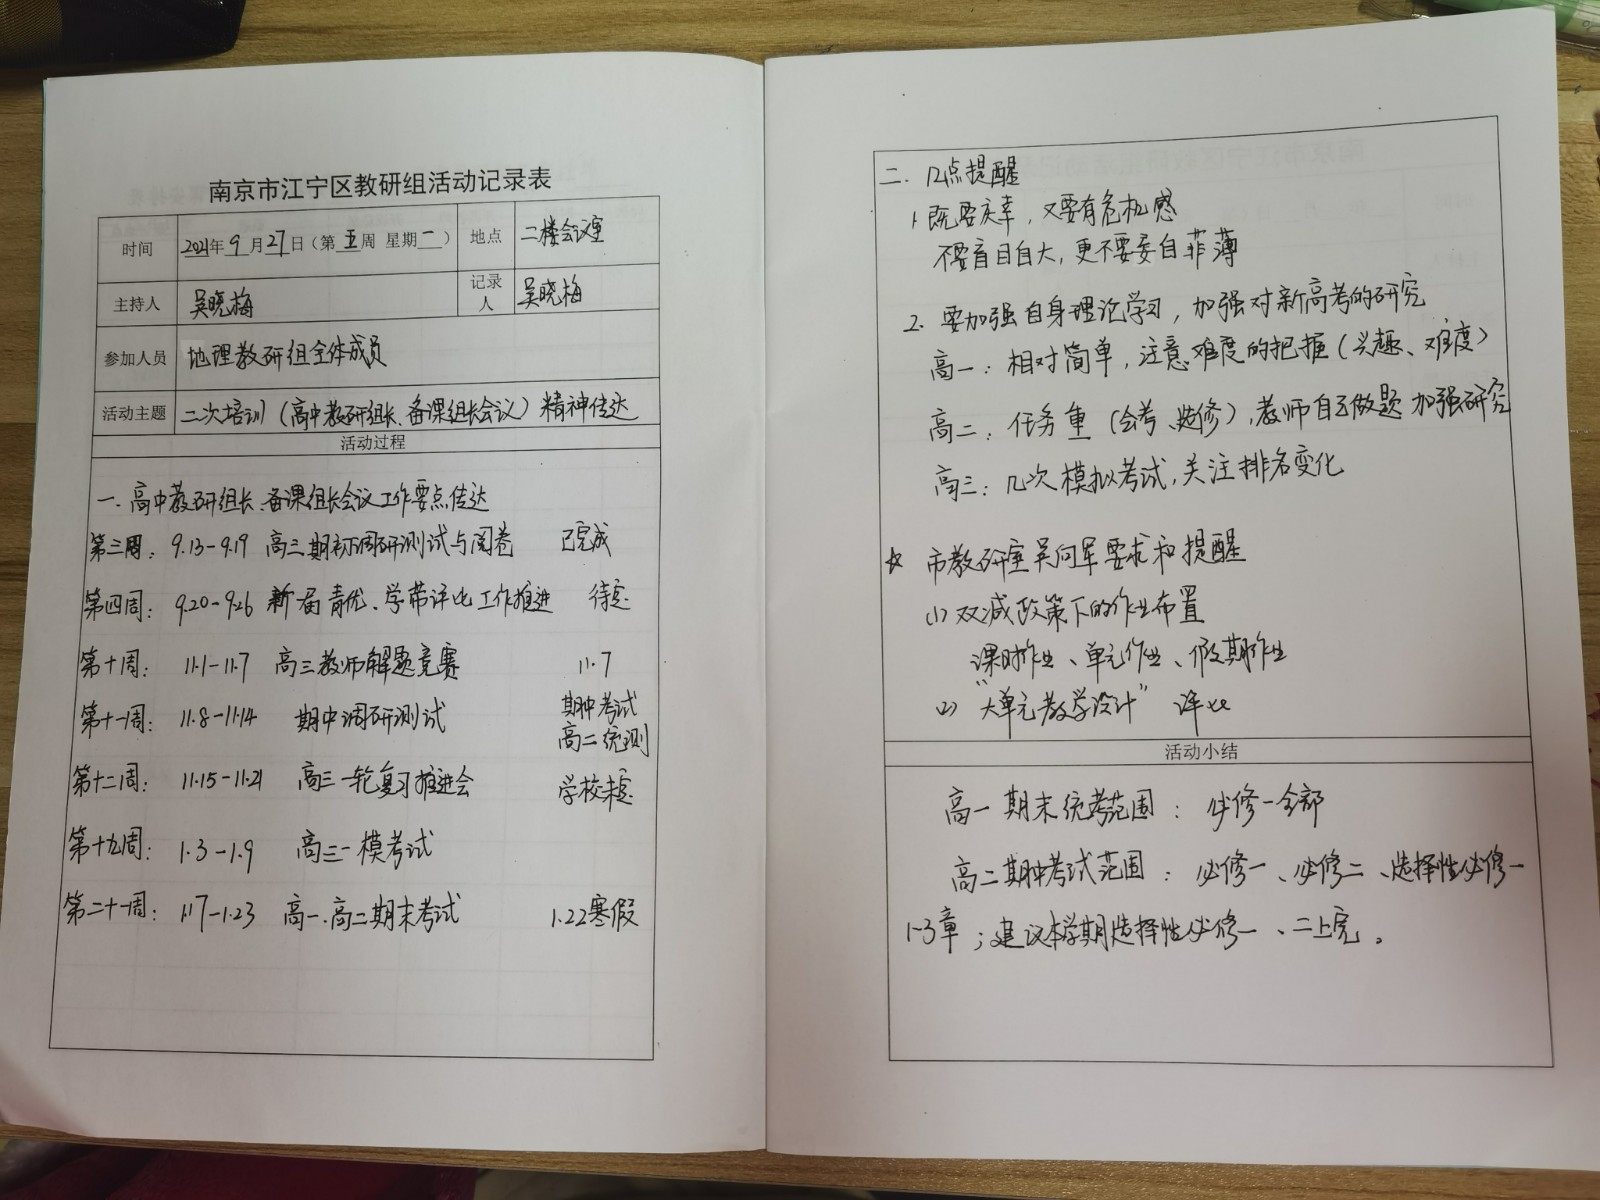 南京市江宁区教研组活动记录表
时间 2021年9月27日（第五周 星期一） 地点 二楼会议室
主持人 吴晓梅 记录人 吴晓梅
参加人员 地理教研组全体成员
活动主题 二次培训（高中教研组长、备课组长会议）精神传达
活动过程
一.高中教研组长、备课组长会议工作要点传达
第三周: 9.13-9.19 高三期初调研测试与阅卷 已完成
第四周: 9.20-9.26 新届青优、学带评比工作推进 待定
第十周: 11.1-11.7 高三教师解题竞赛 11.7
第十一周: 11.8-11.14 期中调研测试 期中考试
高二统测
第十二周: 11.15-11.21 高三一轮复习推进会 学校未定
第十九周: 1.3-1.9 高三一模考试
第二十一周: 1.17-1.23 高一.高二期末考试 1.22寒假
二.几点提醒
1.既要庆幸，又要有危机感
不要盲目自大，更不要妄自菲薄
2.要加强自身理论学习，加强对新高考的研究
高一：相对简单，注意难度的把握（兴趣、难度）
高二：任务重（会考、选修），教师自己做题 加强研究
高三：几次模拟考试，关注排名变化
☆ 市教研室吴向军要求和提醒
(1)双减政策下的作业布置
课时作业、单元作业、假期作业
(2)“大单元教学设计” 评比
活动小结
高一期末统考范围：必修一全部
高二期中考试范围：必修一、必修二、选择性必修一
1-3章；建议本学期选择性必修一、二上完。